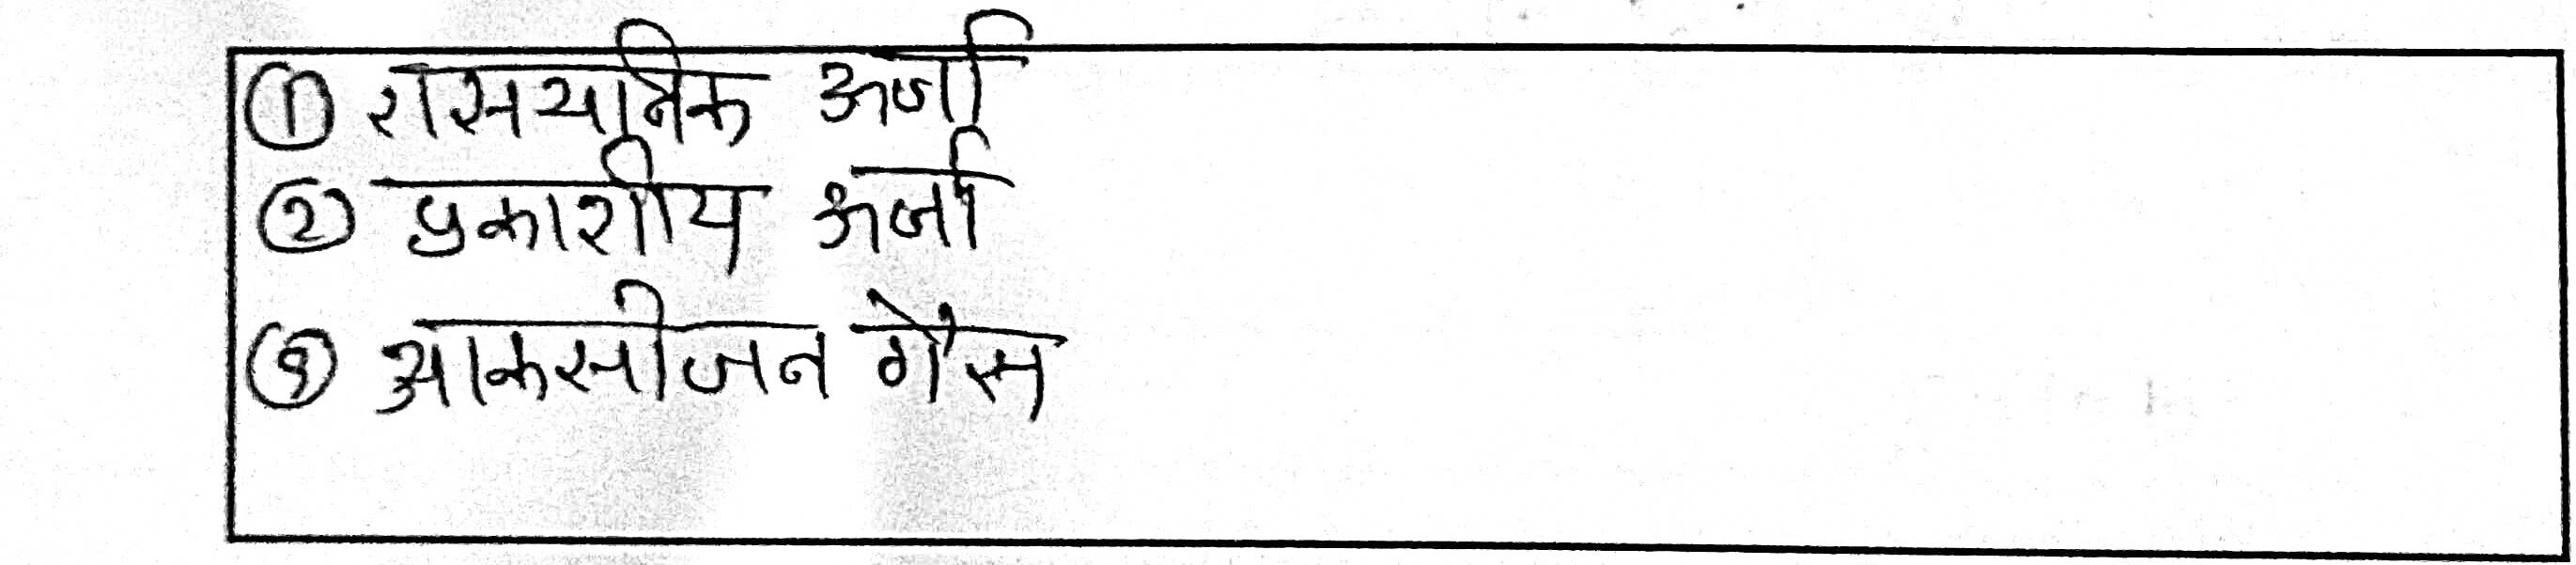 ① रासयानिक ऊर्जा
② प्रकाशीय ऊर्जा
③ आकसीजन गैस